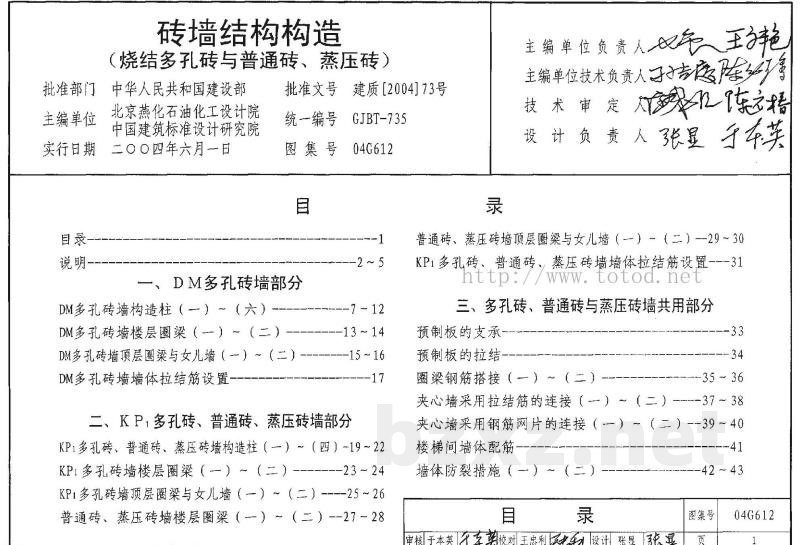 砖墙结构构造
(烧结多孔砖与普通砖、蒸压砖)
批准部门 中华人民共和国建设部 批准文号 建质[2004]73号
主编单位 北京燕化石油化工设计院 中国建筑标准设计研究院 统一编号 GJBT-735
实行日期 二〇〇四年六月一日 图集号 04G612
主编单位负责人
主编单位技术负责人
技术审定人
设计负责人 张显 于本英
目 录
目录---1
说明---2~5
一、DM多孔砖墙部分
DM多孔砖墙构造柱(一)~(六)---7~12
DM多孔砖墙楼层圈梁(一)~(二)---13~14
DM多孔砖墙顶层圈梁与女儿墙(一)~(二)---15~16
DM多孔砖墙墙体拉结筋设置---17
二、KP1多孔砖、普通砖、蒸压砖墙部分
KP1多孔砖、普通砖、蒸压砖墙构造柱(一)~(四)-19~22
KP1多孔砖墙楼层圈梁(一)~(二)---23~24
KP1多孔砖墙顶层圈梁与女儿墙(一)~(二)---25~26
普通砖、蒸压砖墙楼层圈梁(一)~(二)--27~28
普通砖、蒸压砖墙顶层圈梁与女儿墙(一)~(二)--29~30
KP1多孔砖、普通砖、蒸压砖墙墙体拉结筋设置---31
http://www.totod.net
三、多孔砖、普通砖与蒸压砖墙共用部分
预制板的支承---33
预制板的拉结---34
圈梁钢筋搭接(一)~(二)---35~36
夹心墙采用拉结筋的连接(一)~(二)---37~38
夹心墙采用钢筋网片的连接(一)~(二)--39~40
楼梯间墙体配筋---41
墙体防裂措施(一)~(二)---42~43
目 录 图集号 04G612
审核 于本英 校对 王忠利 设计 张显 页 1